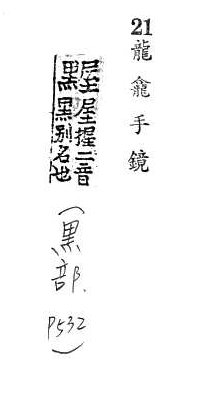 21龍龕手鏡
屋握二音
黑别名也
(黑部. P532)